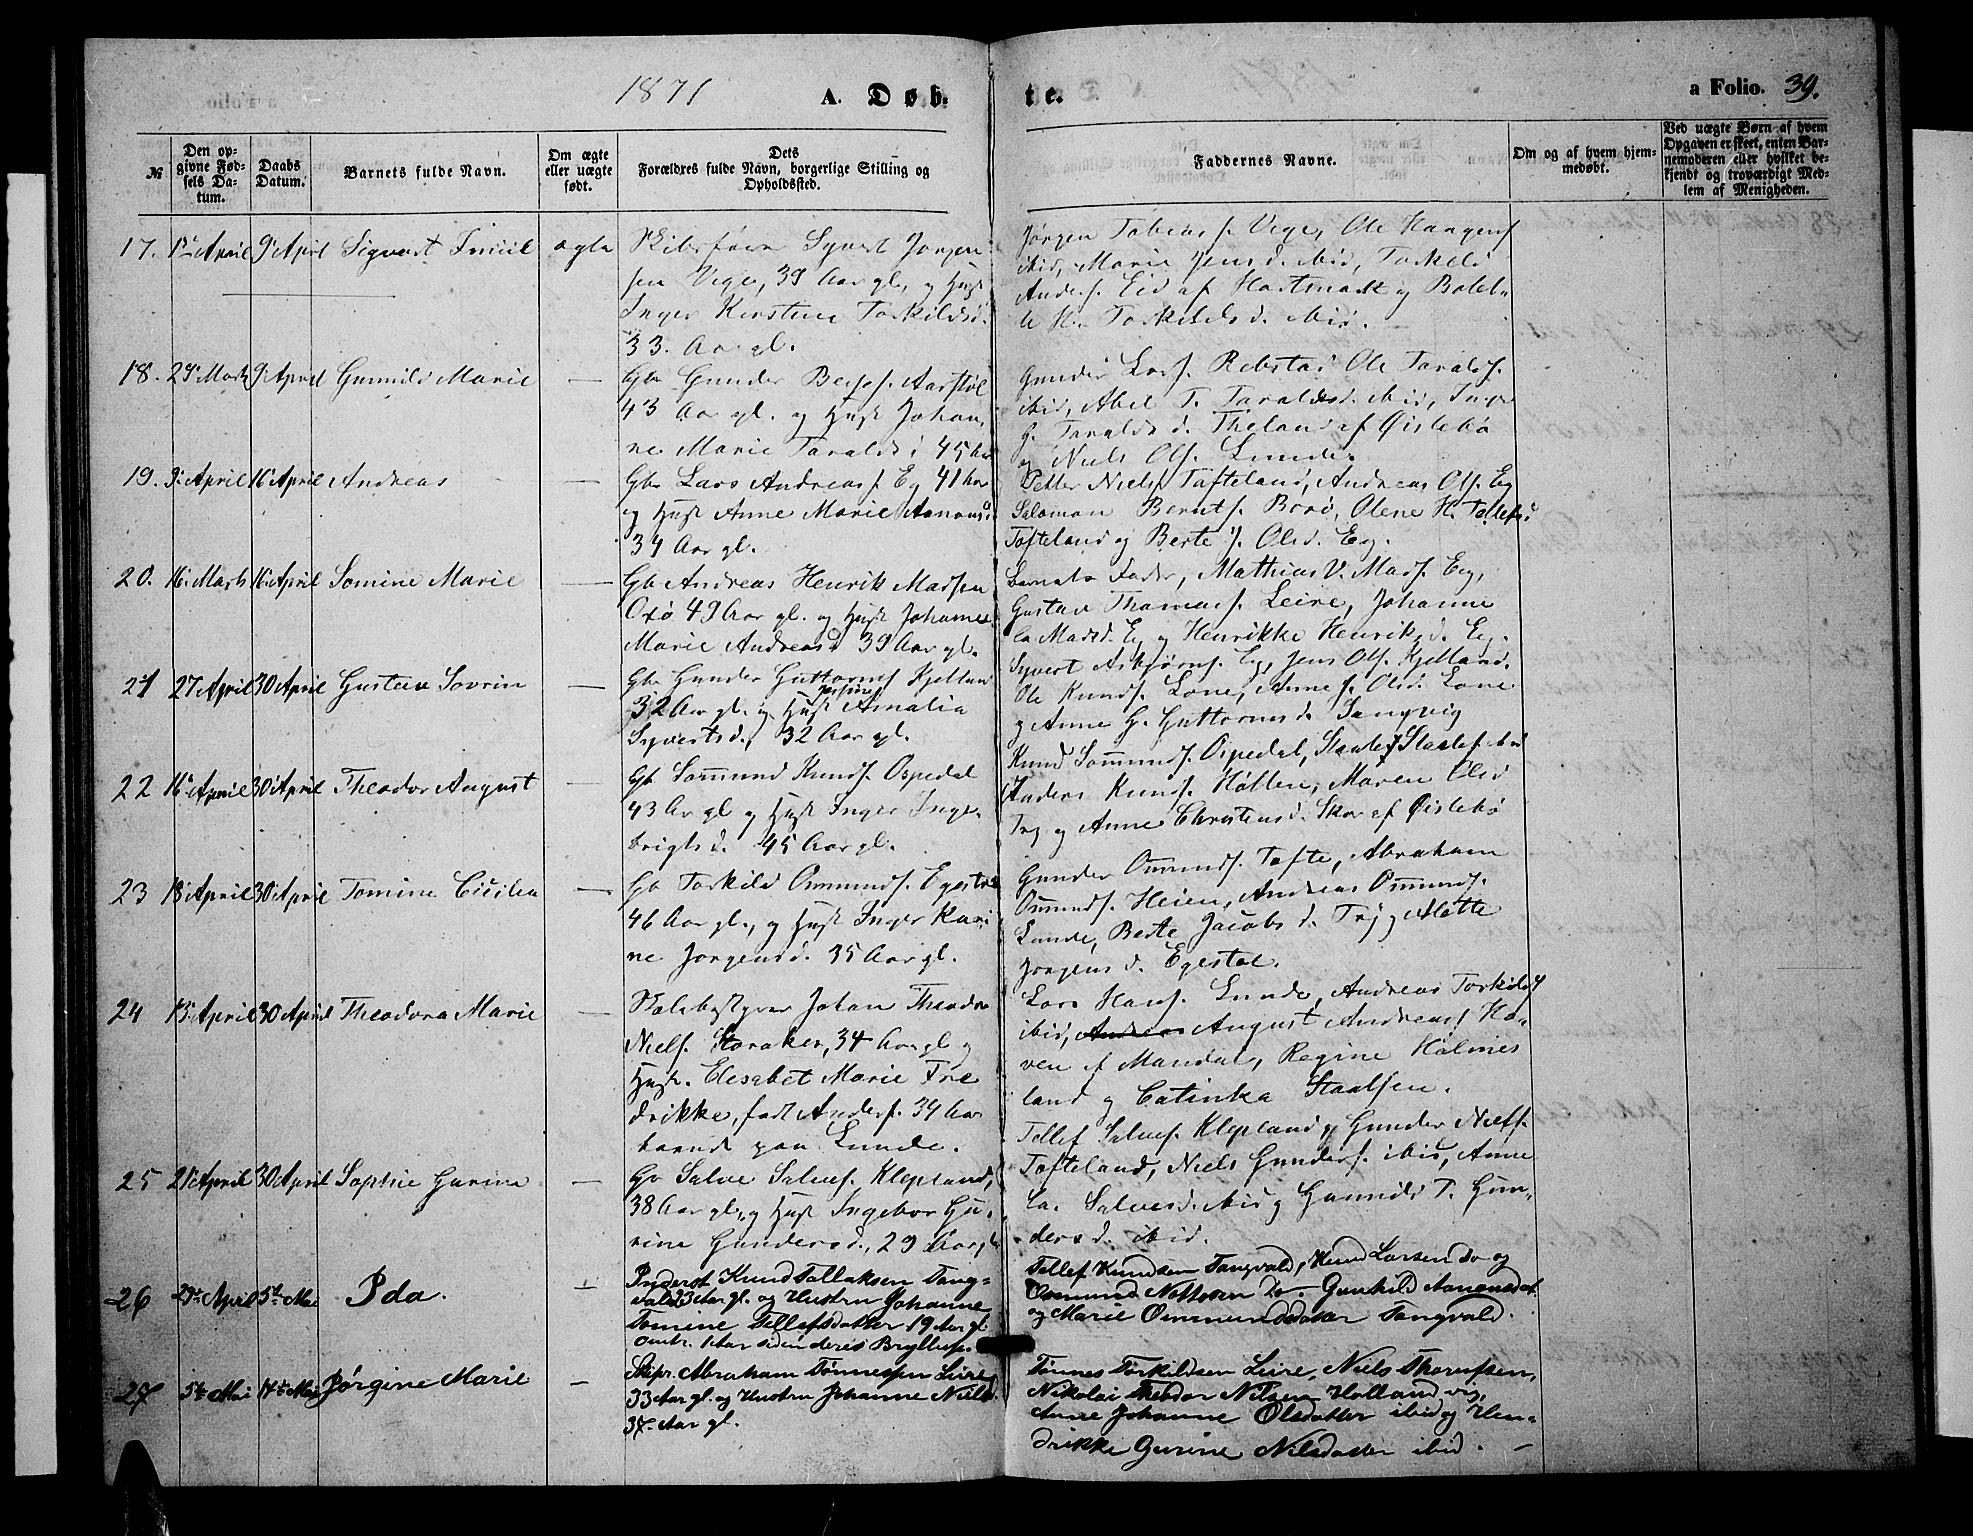 1871 A. Døb- te. a Folio. 39.
№ Den opgivne Fødsels Datum. Daabs Datum. Barnets fulde Navn. Om ægte eller uægte født. Dets Forældres fulde Navn, borgerlige Stilling og Opholdssted. Faddernes Navne. Om og af hvem hjemmedøbt. Ved uægte Børn af hvem Opgaven er skeet, enten Barnemoderen eller hvilket bekjendt og troværdigt Medlem af Menigheden.
17. 1ste April 9' April Sigvart Emiil ægte Skibsfører Syvert Jørgen-
sen Vige, 39 Aar gl, og Hust
Inger Kirstine Torkildsd.
33. Aar gl.
Jørgen Tobias s. Vige, Ole Haagens
ibid, Marie Jens d. ibid, Torkel
Anders. Eid af Hartmark og
Torkildsd. ibid.
18. 29' Marts 9' April Gunnild Marie — Gbr Gunder Aarstøl
43 Aar gl. og Hust Johan-
ne Marie Taralds d 45 Aar
Gunder Lars. Rebstad Ole Taralds.
ibid, Abel T. Taraldsd. ibid, Inger
G. Taralds d. Theland af Øislebø
og Niels Ols. Lunde.
19. 9' April 16' April Andreas — Gbr Lars Andreas s. Eg 41 Aar
og Hust Anne Marie Aanonsd.
34 Aar gl.
Petter Niels. Tofteland, Andreas Ols. Eg
Salomon Bernts. Borø, Olene H. Tollefsd
Tofteland og Berte J. Olsd. Eg.
20. 16' Marts 16' April Somine Marie — Gb Andreas Henrik Madsen
Oxø 49 Aar gl. og Hust Johanne
Marie Andreasd 39 Aar gl.
Barnets Fader, Mathias V. Mads. Eg,
Gustav Thomas s. Leire, Johanne
La Madsd. Eg og Henrikke Henriks d. Eg.
21 27 April 30 April Gustav Sovrin — Gbr Gunder Guttorms Kjelland
32 Aar gl. og Hust Amalia
Syvertsd., 32 Aar gl.
Syvert Asbjørns. Eg, Jens Ols. Kjelland.
Ole Knuds. Lone, Anne J. Olsd. Lone
og Anne G. Guttorms d. Sangvig
22 16' April 30' April Theodor August — Gb Sommund Knuds. Ospedal
43 Ar gl og Hust Inger Inge-
brigts d. 45 Aar gl.
Knud Sommunds. Ospedal, Staale Staales. ibid
Anders Knuds. Holten, Maren Olsd
Try og Anne Christens d. Skar af Øislebø
23 18' April 30 April Tomine Cicilia — Gb Torkild Ommunds. Egestøl
46 Aar gl., og Hust Inger Kari-
ne Jørgens d. 35 Aar gl.
Gunder Ommunds. Tofte, Abraham
Ommunds. Heien, Andreas Ommunds.
Lunde, Berte Jacobs d. Try og Alette
Jørgens d. Egestøl.
24 13' April 30 April Theodora Marie — Skolebestyrer Johan Theodor
Niels. Storaker, 34 Aar gl og
Hust. Elesabet Marie Fre
drikke, født Anders. 34 Aar
boende paa Lunde.
Lars Hans. Lunde, Andreas Torkilds
ibid, Andreas August Andreass Ha-
ven af Mandal, Regine Holmes
land og Catinka Staalsen.
25 21' April 30 April Sophie Gurine — Gb Salve Salves. Klepland,
38 Aar gl, og Hust Ingebor Gu-
rine Gundersd., 29 Aar gl
Tellef Salves. Klepland og Gunder Niels.
Tofteland, Niels Gunders. ibid, Anne
La. Salvesd. ibid og Gunnild T. Gun-
ders d. ibid.
26 29de April 5te Mai Ida. — Inderst Knud Tallaksen Tang-
vald 23 Aar gl. og Hustru Johanne
Tomine Tellefsdatter 19 Aar gl
omtr. 1 Aar siden deres Bryllup.
Tellef Knudsen Tangvald, Knud Larsen do og
Ommund Nottosen Do — Gunhild Aanensdat
og Marie Ommundsdatter Tangvald.
27 5te Mai 14de Mai Jørgine Marie — Skipr. Abraham Tønnessen Leire
33 Aar gl. og Hustru Johanne Nielsd.
37 Aar gl.
Tønnes Torkildsen Leire, Niels Thorufsen,
Nikolai Theodor Nilsen Hollandvig,
Anne Johanne Olsdatter ibid og Hen-
drikke Gurine Nilsdatter ibid. —